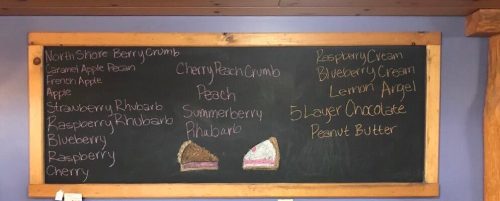 North Shore Berry Crumb
Caramel Apple Pecan
French Apple
Apple
Strawberry Rhubarb
Raspberry Rhubarb
Blueberry
Raspberry
Cherry
Cherry Peach Crumb
Peach
Summerberry
Rhubarb
Raspberry Cream
Blueberry Cream
Lemon Angel
5 Layer Chocolate
Peanut Butter